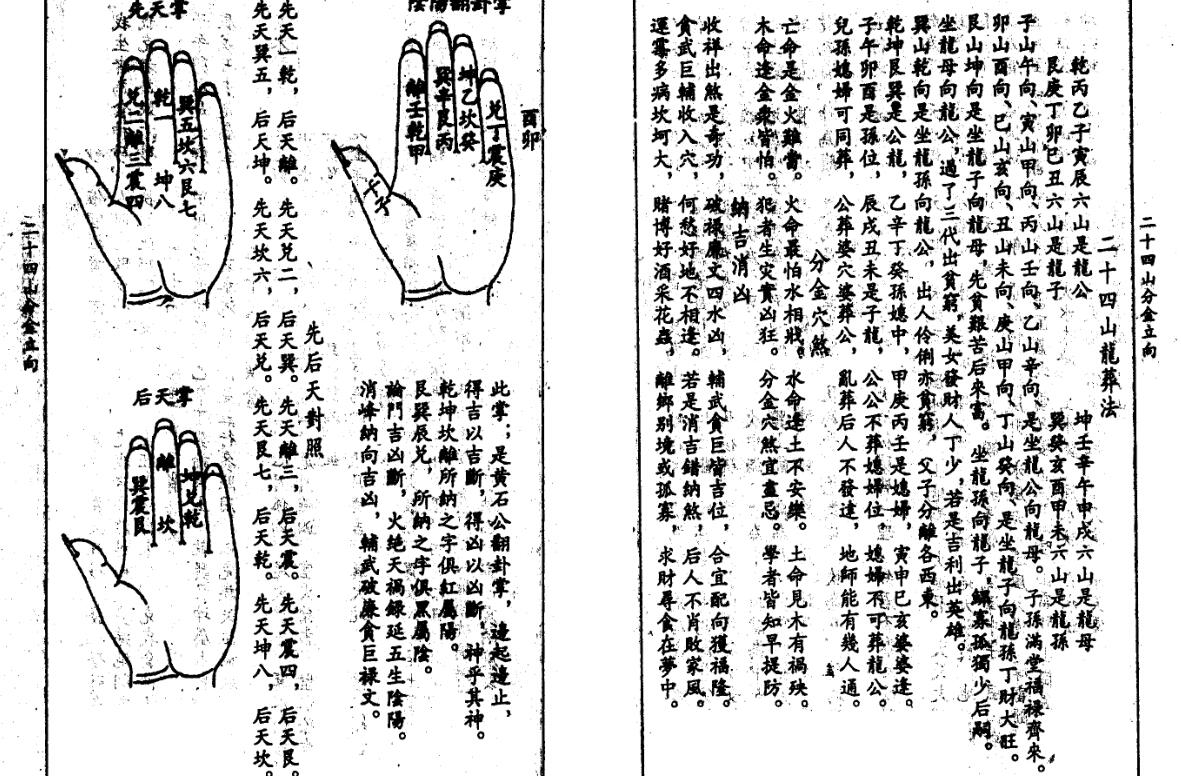 二十四山分金立向
二十四山龍葬法
乾丙乙子寅辰六山是龍公　坤壬辛午申戌六山是龍母
艮庚丁卯巳丑六山是龍子　巽癸亥酉甲未六山是龍孫
子山午向、寅山甲向、丙山壬向、乙山辛向、是坐龍公向龍母。子孫滿堂福祿齊來。
卯山酉向、巳山亥向、丑山未向、庚山甲向、丁山癸向、是坐龍子向龍孫丁財大旺。
艮山坤向是坐龍子向龍母，先貧艱苦后來富。坐龍孫向龍子，鰥寡孤獨少后嗣。
坐龍母向龍公，過了三代出貧窮，美女發財人丁少，若是吉利出英雄。
巽山乾向是坐龍孫向龍公，出人伶俐亦貧窮，父子分離各西東。
乾坤艮巽是公龍，乙辛丁癸孫媳中，甲庚丙壬是媳婦，寅申巳亥婆婆逢。
子午卯酉是孫位，辰戌丑未是子龍，公公不葬媳婦位，媳婦不可葬龍公。
兒孫媳婦可同葬，公葬婆穴婆葬公，亂葬后人不發達，地師能有幾人通。
分金穴煞
亡命是金火難當。火命最怕水相戕。水命逢土不安樂。土命見木有禍殃。
木命逢金衆皆怕。犯者生灾實凶狂。分金穴煞宜盡忌。學者皆知早提防。
納吉消凶
收祥出煞是奇功，破祿廉文四水凶，輔武貪巨皆吉位，合宜配向獲福隆。
貪武巨輔收入穴，何愁好地不相逢。若是消吉錯納煞，后人不肖敗家風。
運蹇多病坎坷大，賭博好酒采花蟲，離鄉別境或孤寡，求財尋食在夢中。
陰陽翻卦掌
酉卯
兌丁震庚
坤乙坎癸
巽辛艮丙
離壬乾甲
午子
此掌；是黄石公翻卦掌，邊起邊止，
得吉以吉斷，得凶以凶斷，神乎其神。
乾坤坎離所納之字俱紅屬陽。
艮巽辰兑，所納之字俱黑屬陰。
論門吉凶斷，火绝天禍錄延五生陰陽。
消峰納向吉凶，輔武破廉貪巨祿文。
先后天對照
先天一乾，后天離。先天兑二，后天巽。先天離三，后天震。先天震四，后天艮。
先天巽五，后天坤。先天坎六，后天兑。先天艮七，后天乾。先天坤八，后天坎。
先天掌
巽五坎六艮七
乾一
坤八
兑二離三震四
后天掌
坤兑乾
離
坎
巽震艮
二十四山分金立向